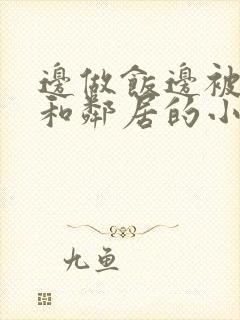 邊做飯邊被
和鄰居的小
九魚